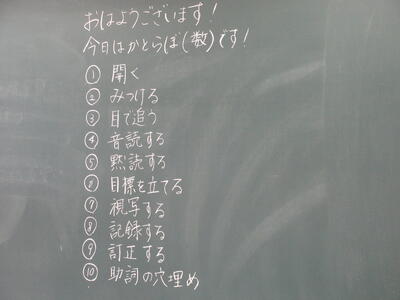 おはようございます!
今日はかとらぼ(数)です!
① 開く
② みつける
③ 目で追う
④ 音読する
⑤ 黙読する
⑥ 目標を立てる
⑦ 視写する
⑧ 記録する
⑨ 訂正する
⑩ 助詞の穴埋め